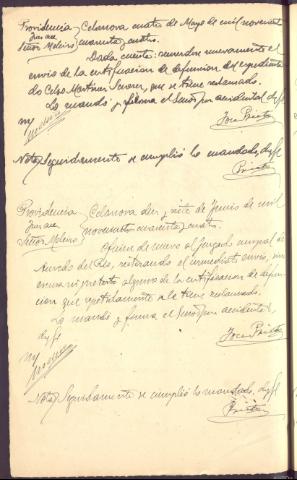 Providencia Celanova cuatro de Mayo de mil novecientos
Juez acc
Señor Moleiro cuarenta y cuatro.
Dada cuenta; recuerdese nuevamente el
envio de la certificacion de defuncion del expedienta
do Celso Martinez Suarez, que se tiene reclamado.
Lo mandó y firma el Señor Juez accidental doy fe
José Prieto
Nota, Seguidamente se cumplió lo mandado, doy fe
Prieto
Providencia Celanova diez y siete de Junio de mil
Juez acc
Señor Moleiro novecientos cuarenta y cuatro.
Oficiese de nuevo al Juzgado municipal de
del Cid, reiterando el inmediato envio, sin
excusa ni pretexto alguno de la certificacion de defun-
cion que repetidamente se le tiene reclamado.
Lo mandó y firma el Señor Juez accidental,
doy fe
José Prieto
Nota, Seguidamente se cumplió lo mandado, doy fe
Prieto